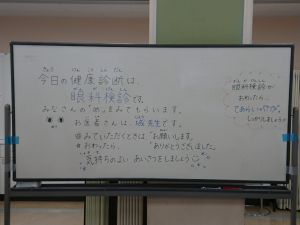 今日の健康診断は、
眼科検診です。
みなさんの"め"をみてもらいます。
お医者さんは、先生です。
※みていただくときは、「お願いします」
※おわったら、「ありがとうございました」
気持ちのよい あいさつをしましょう
眼科検診が
おわったら、
しっかりしましょう